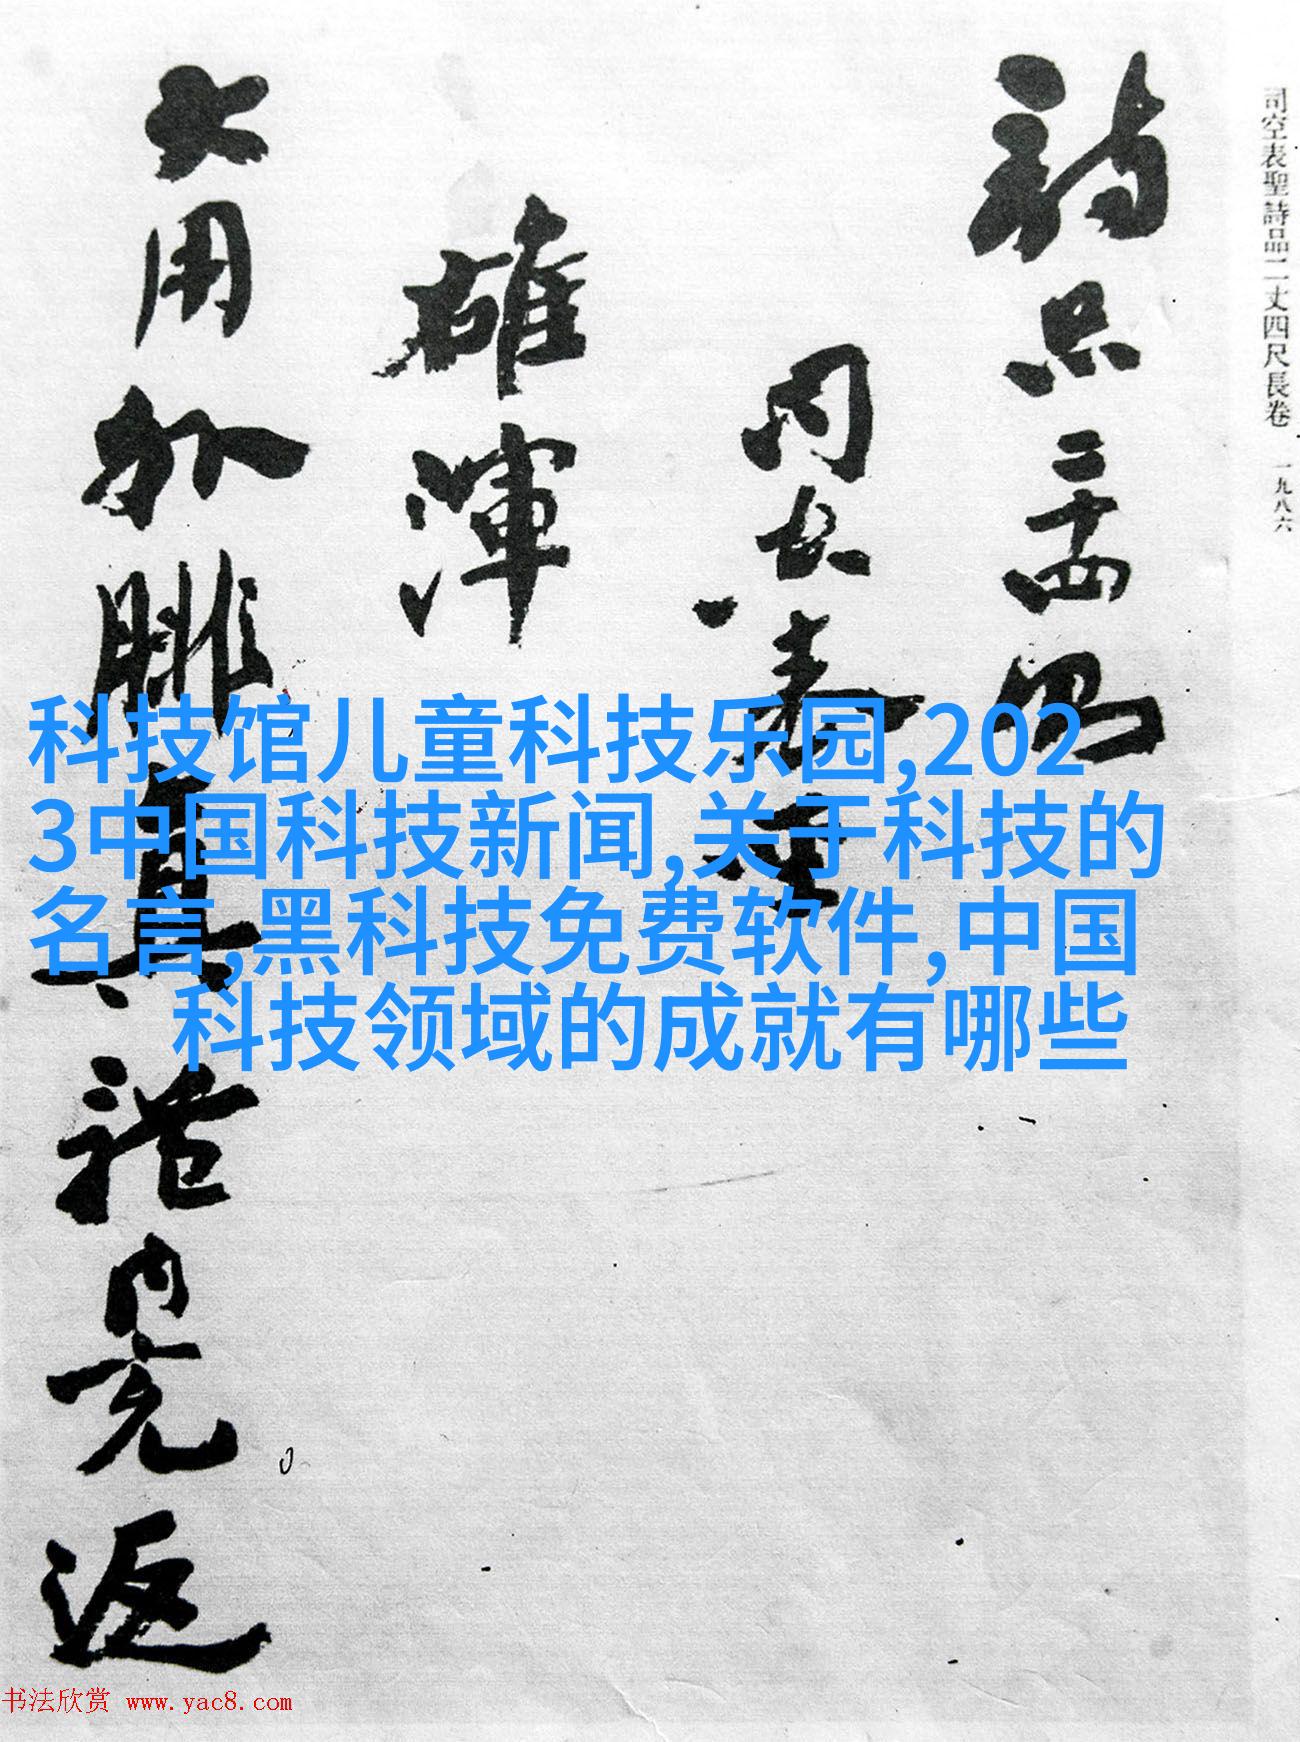 司空表聖詩品二丈四尺長卷 一九八六
詩品二十四則
司空表聖
雄渾
大用外腓真體內充返
科技馆儿童科技乐园,202
3中国科技新闻,关于科技的
名言,黑科技免费软件,中国
科技领域的成就有哪些
书法欣赏 www.yac8.com